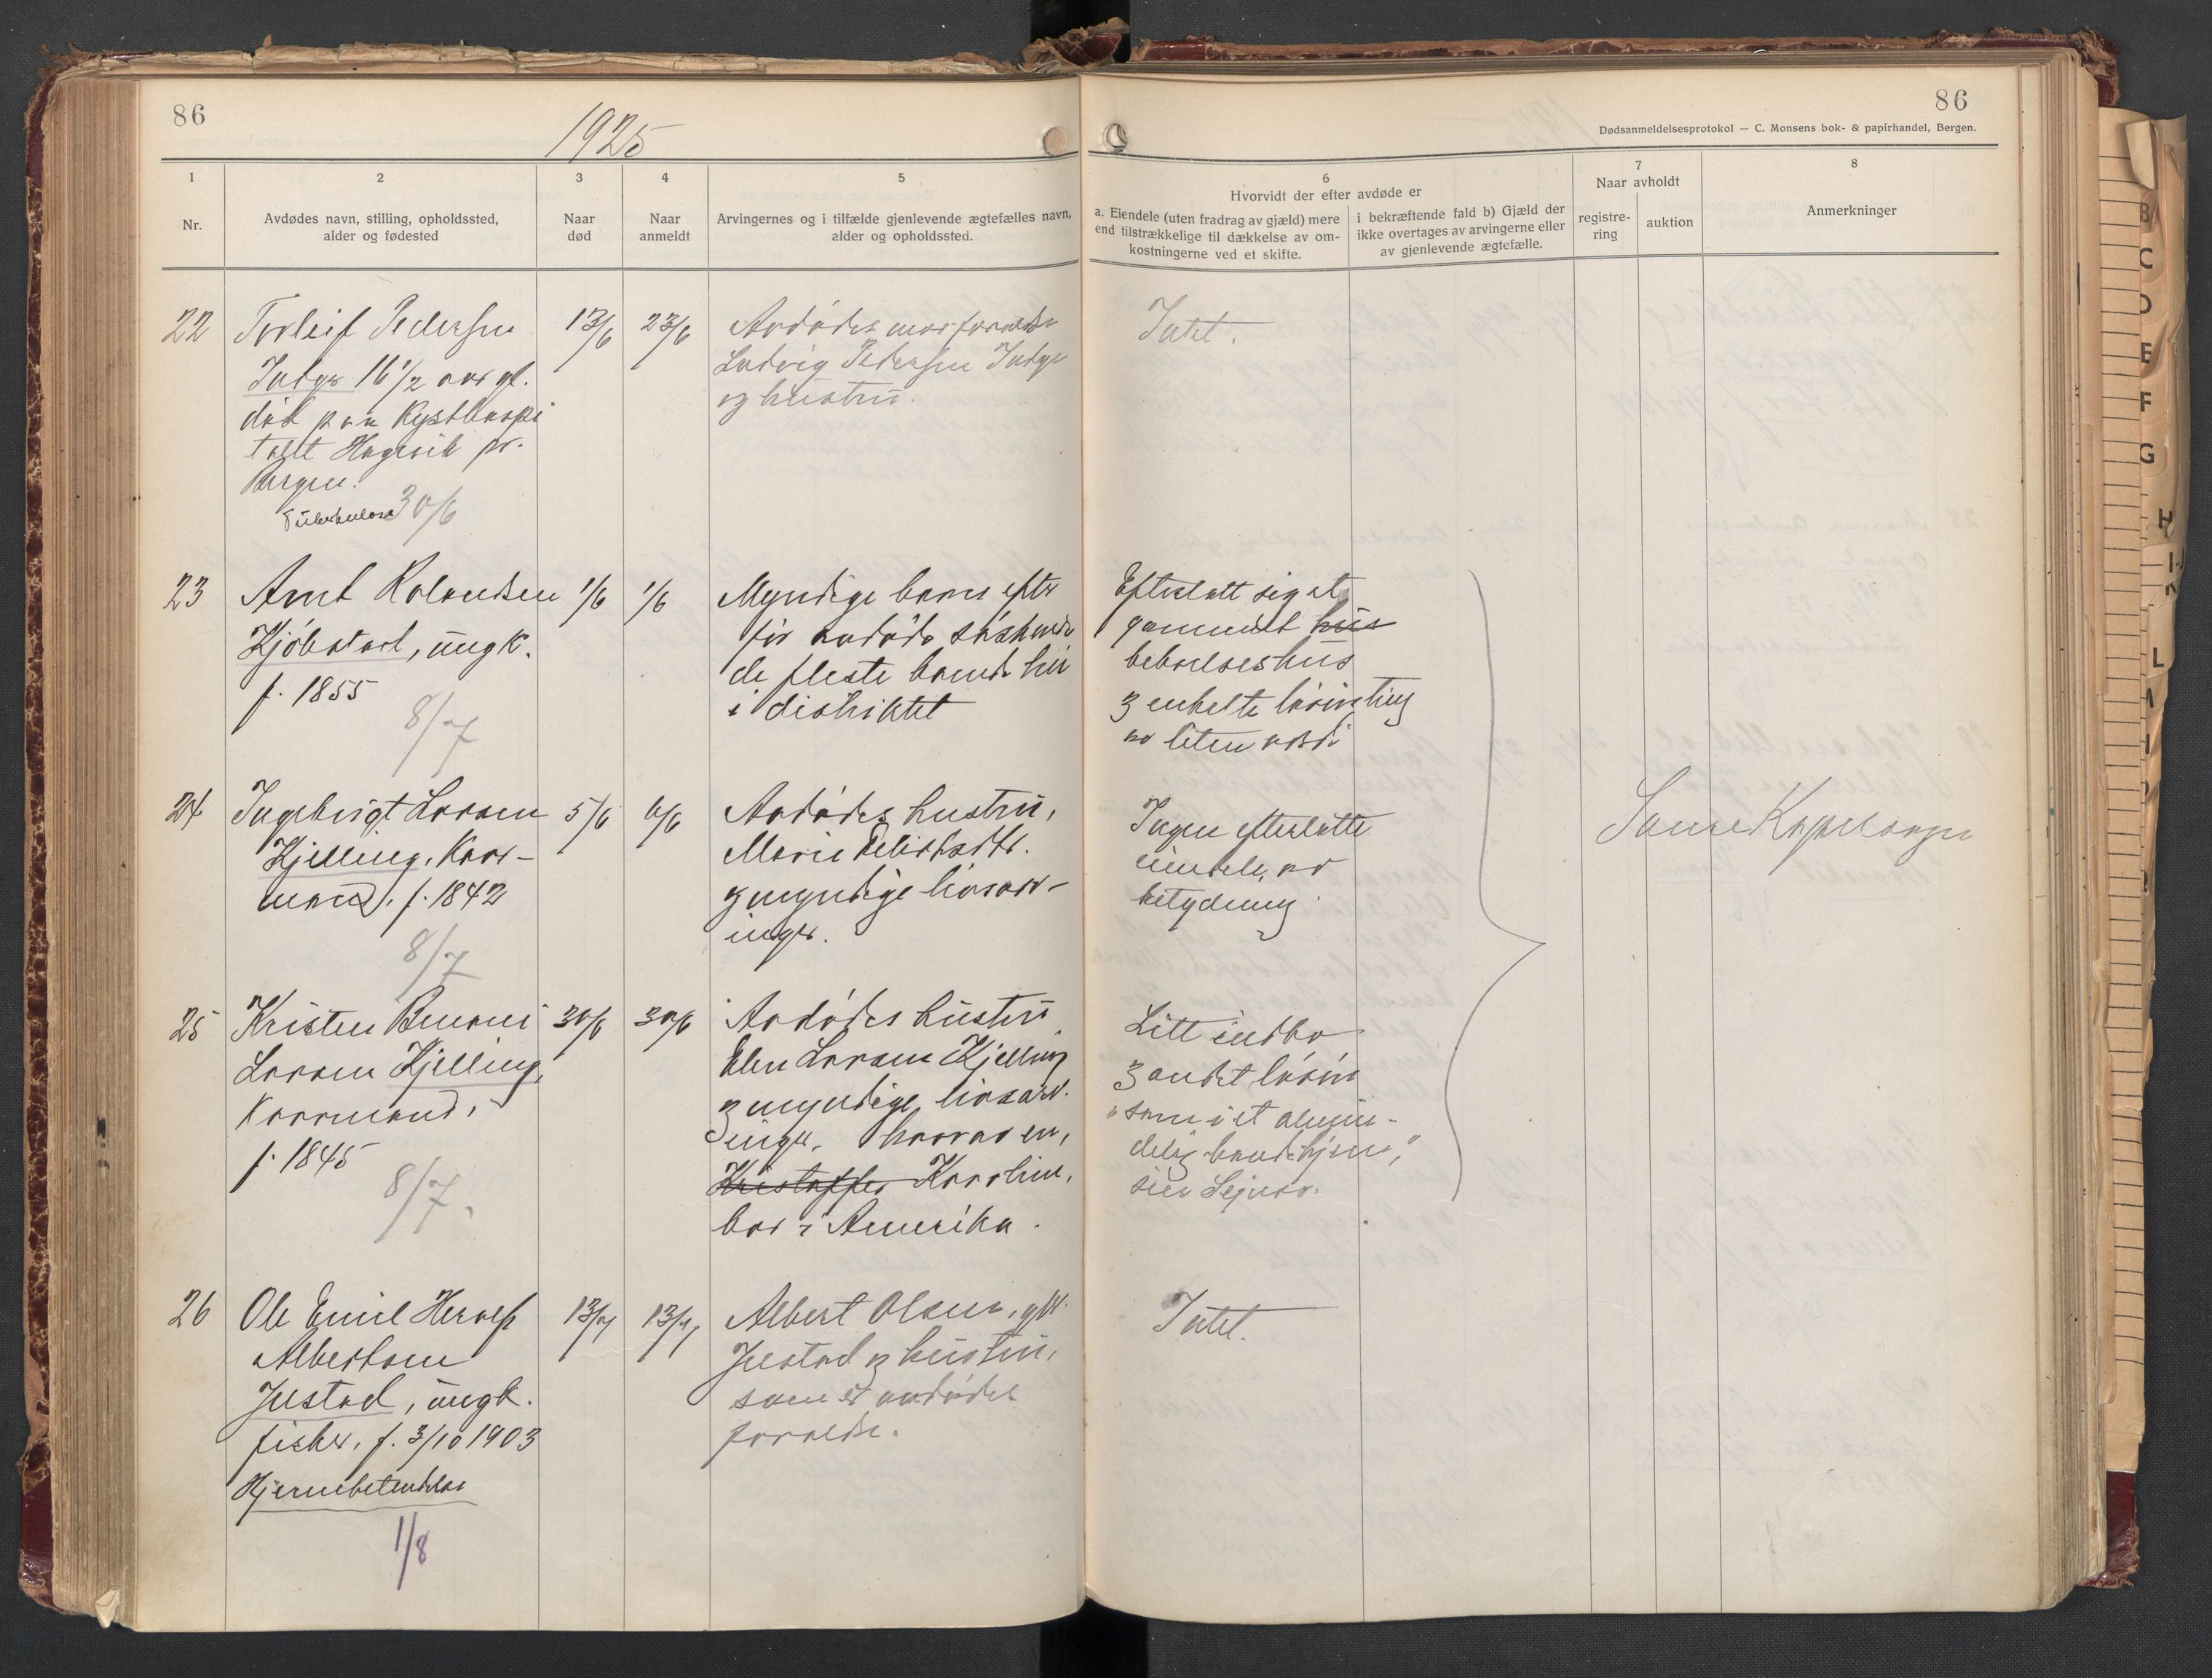 86
1925
86
Dødsanmeldelsesprotokol — C. Monsens bok- & papirhandel, Bergen.
1
2
3
4
5
6
7
8
Nr.
Avdødes navn, stilling, opholdssted,
alder og fødested
Naar
død
Naar
anmeldt
Arvingernes og i tilfælde gjenlevende ægtefælles navn,
alder og opholdssted.
Hvorvidt der efter avdøde er
a. Eiendele (uten fradrag av gjæld) mere
end tilstrækkelige til dækkelse av om-
kostningerne ved et skifte.
i bekræftende fald b) Gjæld der
ikke overtages av arvingerne eller
av gjenlevende ægtefælle.
Naar avholdt
registre-
ring
auktion
Anmerkninger
22
Torleif Pedersen
16 1/2 aar gl.
død paa Kysthospi
talet Hagevik pr.
Bergen.
Tuberkulose 30/6
13/6
23/6
Avdødes
Ludvig Pedersen
og hustru.
Intet.
23
Arnt Rolandsen
Kjøbstad, ungk.
f. 1855
8/7
1/6
1/6
Myndige barn efter
før avdøde søskende
de fleste boende her
i distriktet
Efterlatt sig et
gammelt hus
beboelseshus
og enkelte løsøreting
av liten værdi
24
Ingebrigt Larsen
Kjelling, Kaar-
mand, f. 1842
8/7
5/6
6/6
Avdødes hustru,
Marie
og myndige livsarv-
inger.
Ingen efterlatte
eiendele av
betydning.
25
Kristen Benoni
Larsen Kjelling,
Kaarmand,
f. 1845
8/7.
30/6
30/6
Avdødes hustru
Elen Larsen Kjelling
og myndige livsarv.
inger, hvorav en,
Kristoffer Karoline,
bor i Amerika.
Litt indbo
og andet løsøre
"som i et almin-
delig bondehjem,"
sier
26
Ole Emil Herolf
Albertsen
Jestad, ungk.
fisker, f. 3/10 1903
Hjernebetendelse
1/8
13/7
13/7
Albert Olsen, gbr.
Jestad og hustru,
som er avdødes
forældre.
Intet.
B
C
D
E
F
G
H
L